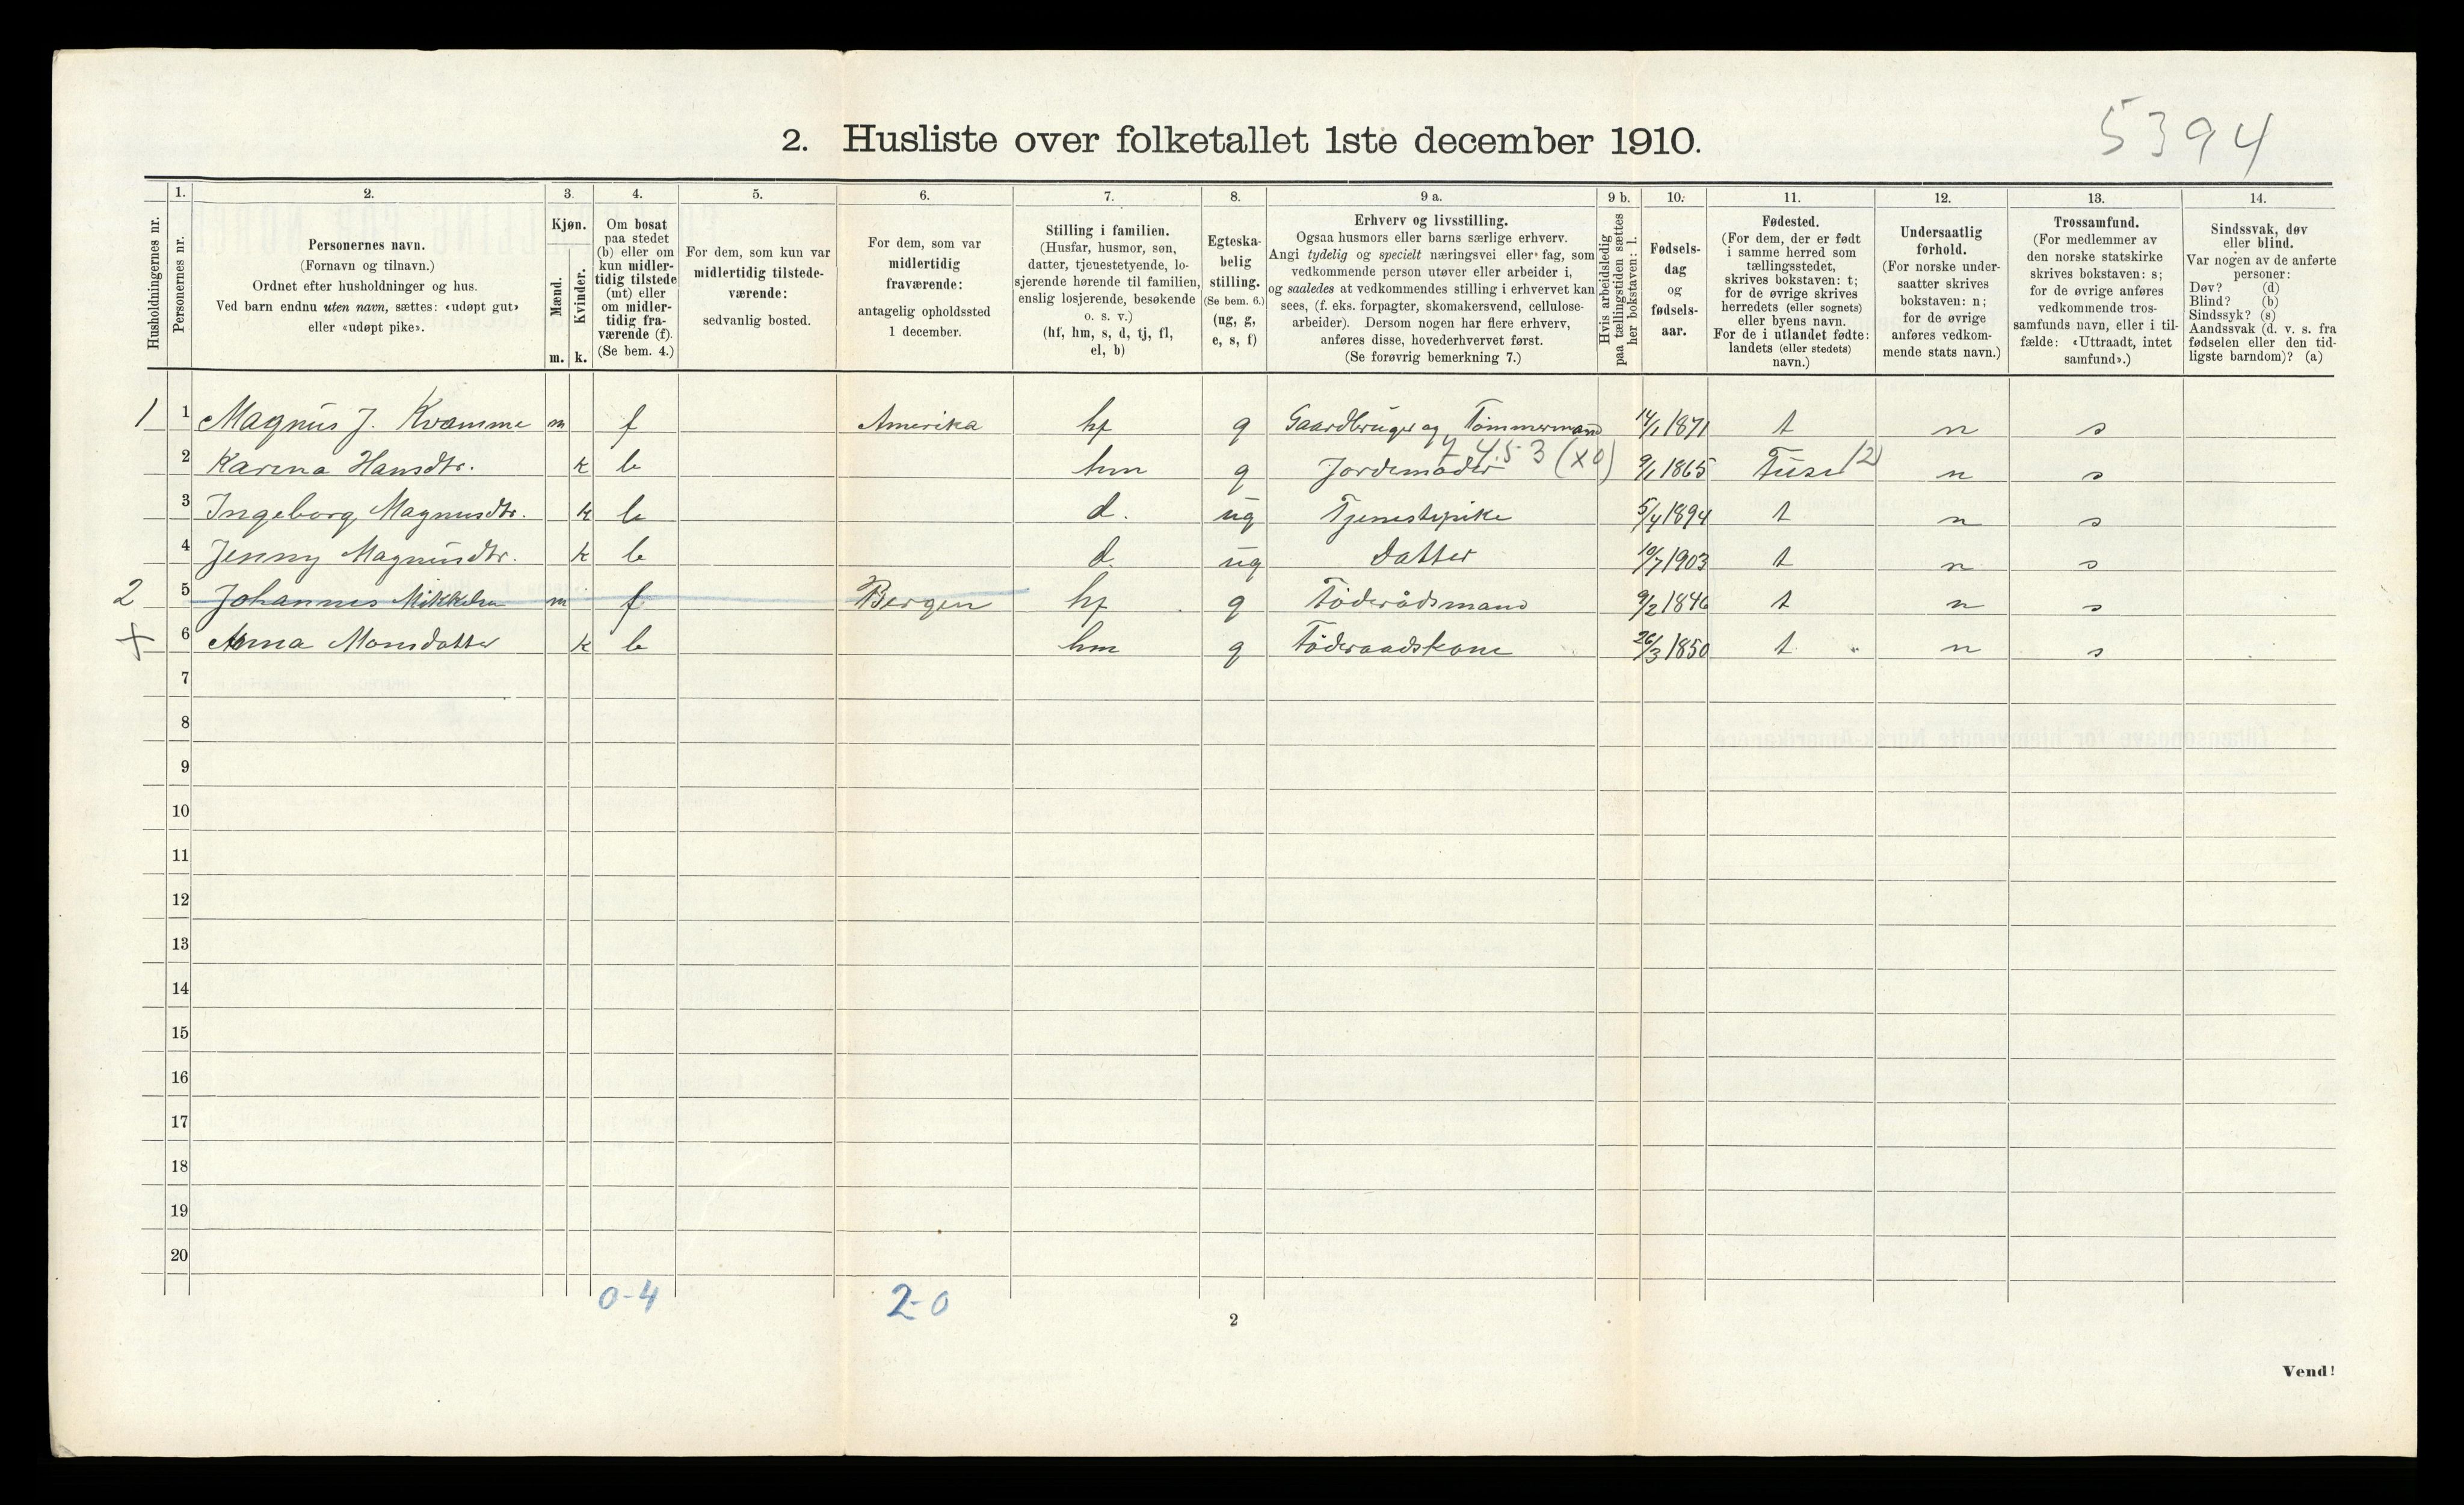 5394
2. Husliste over folketallet 1ste december 1910.
Husholdningernes nr.
1.
Personernes nr.
2.
Personernes navn.
(Fornavn og tilnavn.)
Ordnet efter husholdninger og hus.
Ved barn endnu uten navn, sættes: «udøpt gut»
eller «udøpt pike».
3.
Kjøn.
Mænd.
m.
Kvinder.
k.
4.
Om bosat
paa stedet
(b) eller om
kun midler-
tidig tilstede
(mt) eller
om midler-
tidig fra-
værende (f).
(Se bem. 4.)
5.
For dem, som kun var
midlertidig tilstede-
værende:
sedvanlig bosted.
6.
For dem, som var
midlertidig
fraværende:
antagelig opholdssted
1 december.
7.
Stilling i familien.
(Husfar, husmor, søn,
datter, tjenestetyende, lo-
sjerende hørende til familien,
enslig losjerende, besøkende
o. s. v.)
(hf, hm, s, d, tj, fl,
el, b)
8.
Egteska-
belig
stilling.
(Se bem. 6.)
(ug, g,
e, s, f)
9 a.
Erhverv og livsstilling.
Ogsaa husmors eller barns særlige erhverv.
Angi tydelig og specielt næringsvei eller fag, som
vedkommende person utøver eller arbeider i,
og saaledes at vedkommendes stilling i erhvervet kan
sees, (f. eks. forpagter, skomakersvend, cellulose-
arbeider). Dersom nogen har flere erhverv,
anføres disse, hovederhvervet først.
(Se forøvrig bemerkning 7.)
9 b.
Hvis arbeidsledig
paa tællingstiden sættes
her bokstaven: l.
10.
Fødsels-
dag
og
fødsels-
aar.
11.
Fødested.
(For dem, der er født
i samme herred som
tællingsstedet,
skrives bokstaven: t;
for de øvrige skrives
herredets (eller sognets)
eller byens navn.
For de i utlandet fødte:
landets (eller stedets)
navn.)
12.
Undersaatlig
forhold.
(For norske under-
saatter skrives
bokstaven: n;
for de øvrige
anføres vedkom-
mende stats navn.)
13.
Trossamfund.
(For medlemmer av
den norske statskirke
skrives bokstaven: s;
for de øvrige anføres
vedkommende tros-
samfunds navn, eller i til-
fælde: «Uttraadt, intet
samfund».)
14.
Sindssvak, døv
eller blind.
Var nogen av de anførte
personer:
Døv? (d)
Blind? (b)
Sindssyk? (s)
Aandssvak (d. v. s. fra
fødselen eller den tid-
ligste barndom)? (a)
1 1 Magnus J. Kvamme m f Amerika hf g Gaardbruger og Tømmermand 14/1 1871 t n s
7.453 (x0)
2 Karena Hansdtr. k b hm g Jordemoder 9/1 1865 Fuse 12 n s
3 Ingeborg Magnusdtr. k b d. ug Tjenestepike 5/4 1894 t n s
4 Jenny Magnusdtr. k b d. ug Datter 10/7 1903 t n s
2 5 Johannes Mikkelsen m f Bergen hf g Föderådsmand 9/2 1846 t n s
+ 6 Anna Monsdatter k b hm g Föderaadskone 26/3 1850 t n s
7
8
9
10
11
12
13
14
15
16
17
18
19
20
0-4 2-0
2
Vend!